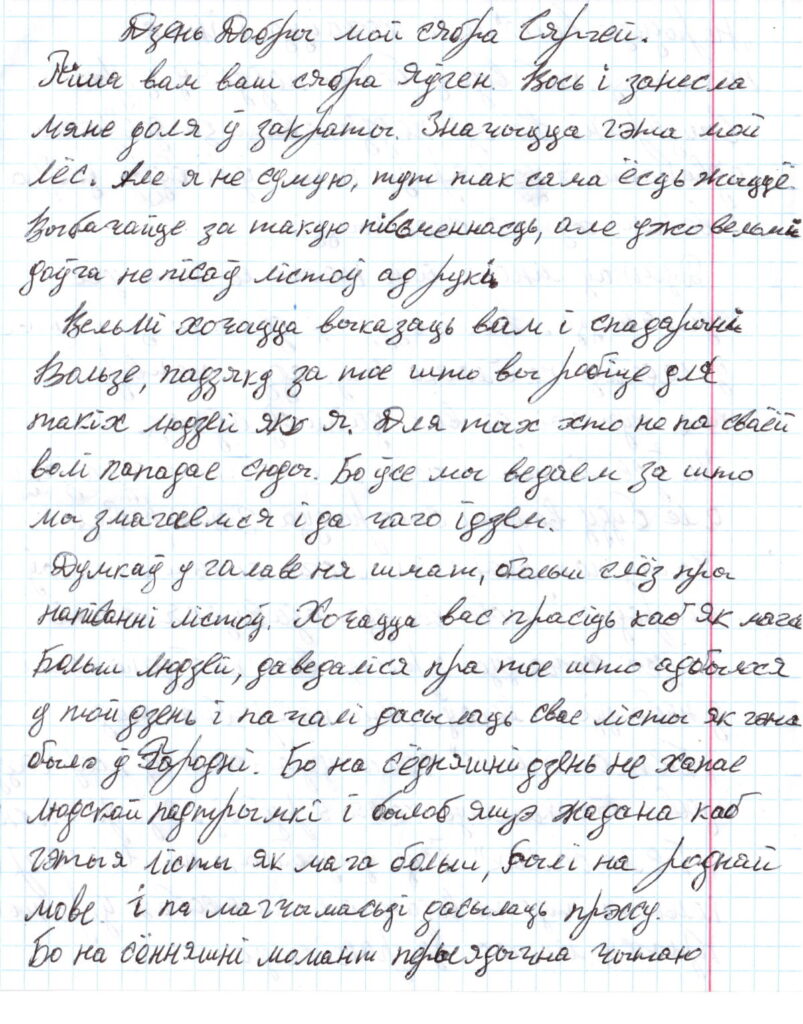 Дзень Добры мой сябра Сяргей.
Піша вам ваш сябра Яўген. Вось і занесла
мяне доля ў закраты. Значыцца гэта мой
лёс. Але я не сумую, тут так сама ёсць жыццё.
Выбачайце за такую півсменнасць, але ужо вельмі
доўга не пісаў лістоў ад рукі.
Вельмі хочацца выказаць вам і спадарыні
Вользе, падзяку за тое што вы робіце для
такіх людзей як я. Для тых хто не па сваёй
волі пападае сюды. Бо ўсе мы ведаем за што
мы змагаемся і да чаго ідзем.
Думкаў у галаве ня шмат, больш слёз пры
напісанні лістоў. Хочацца вас прасіць каб як мага
больш людзей, даведаліся пра тое што адбылося
у той дзень і пачалі дасылаць свае лісты як гэта
было ў Гародні. Бо на сёдняшні дзень не хапае
людской падтрымкі і былоб яшэ жадана каб
гэтыя лісты як мага больш, былі на роднай
мове. і па магчымасьці дасылаць прэссу.
Бо на сённяшні момант перыядычна чытаю